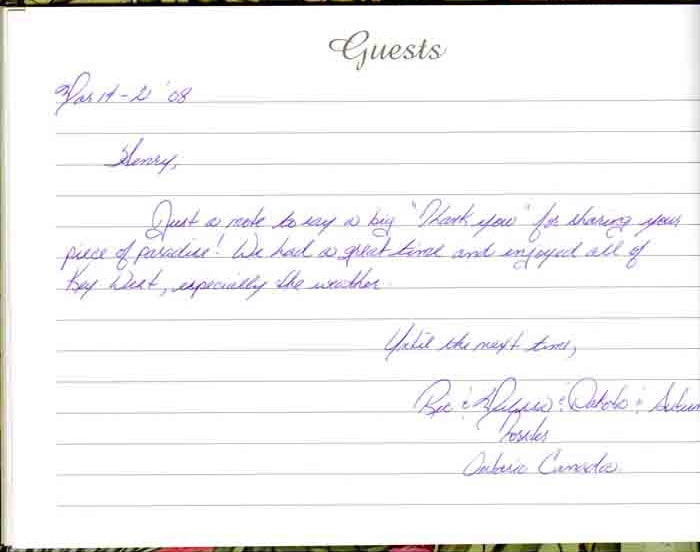 Guests
Mar 14-21 '08
Henry,
Just a note to say a big "Thank you" for sharing your
piece of paradise! We had a great time and enjoyed all of
Key West, especially the weather.
Until the next time,
& & Dakota &
Ontario Canada.